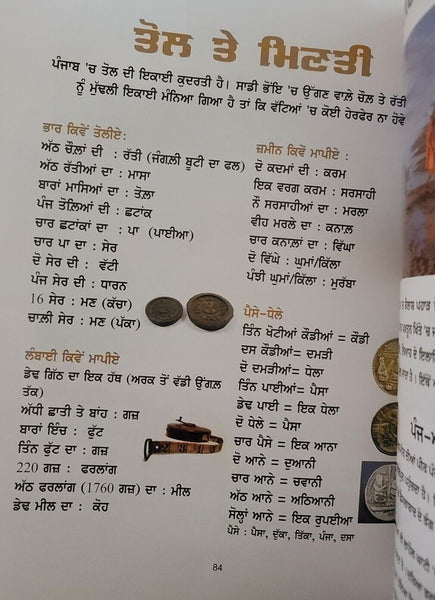 ਤੋਲ ਤੇ ਮਿਣਤੀ
ਪੰਜਾਬ 'ਚ ਤੋਲ ਦੀ ਇਕਾਈ ਕੁਦਰਤੀ ਹੈ। ਸਾਡੀ ਭੋਇੰ 'ਚ ਉੱਗਣ ਵਾਲੇ ਚੌਲ ਤੇ ਰੱਤੀ
ਨੂੰ ਮੁੱਢਲੀ ਇਕਾਈ ਮੰਨਿਆ ਗਿਆ ਹੈ ਤਾਂ ਕਿ ਵੱਟਿਆਂ 'ਚ ਕੋਈ ਹੇਰਫੇਰ ਨਾ ਹੋਵੇ
ਭਾਰ ਕਿਵੇਂ ਤੋਲੀਏ:
ਅੱਠ ਚੌਲਾਂ ਦੀ : ਰੱਤੀ (ਜੰਗਲ਼ੀ ਬੂਟੀ ਦਾ ਫਲ)
ਅੱਠ ਰੱਤੀਆਂ ਦਾ : ਮਾਸਾ
ਬਾਰਾਂ ਮਾਸਿਆਂ ਦਾ : ਤੋਲ਼ਾ
ਪੰਜ ਤੋਲ਼ਿਆਂ ਦੀ : ਛਟਾਂਕ
ਚਾਰ ਛਟਾਂਕਾਂ ਦਾ : ਪਾ (ਪਾਈਆ)
ਚਾਰ ਪਾ ਦਾ : ਸੇਰ
ਦੋ ਸੇਰ ਦੀ : ਵੱਟੀ
ਪੰਜ ਸੇਰ ਦੀ : ਧਾਰਨ
16 ਸੇਰ : ਮਣ (ਕੱਚਾ)
ਚਾਲ਼ੀ ਸੇਰ : ਮਣ (ਪੱਕਾ)
ਲੰਬਾਈ ਕਿਵੇਂ ਮਾਪੀਏ
ਡੇਢ ਗਿੱਠ ਦਾ ਇਕ ਹੱਥ (ਅਰਕ ਤੋਂ ਵੱਡੀ ਉਂਗਲ਼
ਤੱਕ)
ਅੱਧੀ ਛਾਤੀ ਤੇ ਬਾਂਹ : ਗਜ਼
ਬਾਰਾਂ ਇੰਚ : ਫੁੱਟ
ਤਿੰਨ ਫੁੱਟ ਦਾ : ਗਜ਼
220 ਗਜ਼ : ਫਰਲਾਂਗ
ਅੱਠ ਫਰਲਾਂਗ (1760 ਗਜ਼) ਦਾ : ਮੀਲ
ਡੇਢ ਮੀਲ ਦਾ : ਕੋਹ
ਜ਼ਮੀਨ ਕਿਵੇਂ ਮਾਪੀਏ :
ਦੋ ਕਦਮਾਂ ਦੀ : ਕਰਮ
ਇਕ ਵਰਗ ਕਰਮ : ਸਰਸਾਹੀ
ਨੌਂ ਸਰਸਾਹੀਆਂ ਦਾ : ਮਰਲਾ
ਵੀਹ ਮਰਲੇ ਦਾ : ਕਨਾਲ਼
ਚਾਰ ਕਨਾਲ਼ਾਂ ਦਾ : ਵਿੱਘਾ
ਦੋ ਵਿੱਘੇ : ਘੁਮਾਂ/ਕਿੱਲਾ
ਪੰਝੀ ਘੁਮਾਂ/ਕਿੱਲਾ : ਮੁਰੱਬਾ
ਪੈਸੇ-ਧੇਲੇ
ਤਿੰਨ ਖੋਟੀਆਂ ਕੌਡੀਆਂ = ਕੌਡੀ
ਦਸ ਕੌਡੀਆਂ = ਦਮੜੀ
ਦੋ ਦਮੜੀਆਂ = ਧੇਲਾ
ਤਿੰਨ ਪਾਈਆਂ = ਪੈਸਾ
ਡੇਢ ਪਾਈ = ਇਕ ਧੇਲਾ
ਦੋ ਧੇਲੇ = ਪੈਸਾ
ਚਾਰ ਪੈਸੇ = ਇਕ ਆਨਾ
ਦੋ ਆਨੇ = ਦੁਆਨੀ
ਚਾਰ ਆਨੇ = ਚਵਾਨੀ
ਅੱਠ ਆਨੇ = ਅਠਿਆਨੀ
ਸੋਲ੍ਹਾਂ ਆਨੇ = ਇਕ ਰੁਪਈਆ
ਪੈਸੇ : ਪੈਸਾ, ਦੁੱਕਾ, ਤਿੱਕਾ, ਪੰਜਾ, ਦਸਾ
84